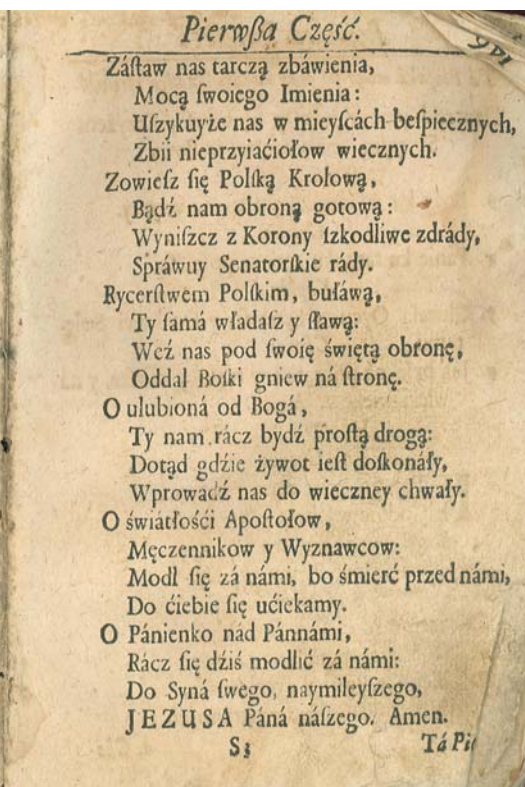 Pierwßa Część.
146
Záſtaw nas tarczą zbáwienia,
Mocą ſwoiego Imienia:
Uſzykuyże nas w mieyſcách beſpiecznych,
Zbii nieprzyiaćiołow wiecznych.
Zowieſz ſię Polſką Krolową,
Bądź nam obroną gotową:
Wyniſzcz z Korony ſzkodliwe zdrády,
Spráwuy Senatorſkie rády.
Rycerſtwem Polſkim, bułáwą,
Ty ſamá władaſz y ſławą:
Weź nas pod ſwoię świętą obronę,
Oddal Boſki gniew ná ſtronę.
O ulubioná od Bogá,
Ty nam rácz bydź proſtą drogą:
Dotąd gdźie żywot ieſt doſkonáły,
Wprowadź nas do wieczney chwały.
O świátłośći Apoſtołow,
Męczennikow y Wyznawcow:
Modl ſię zá námi, bo śmierć przed námi,
Do ćiebie ſię ućiekamy.
O Pánienko nád Pánnámi,
Rácz ſię dźiś modlić zá námi:
Do Syná ſwego, naymileyſzego,
JEZUSA Páná náſzego. Amen.
S3 Tá Pie